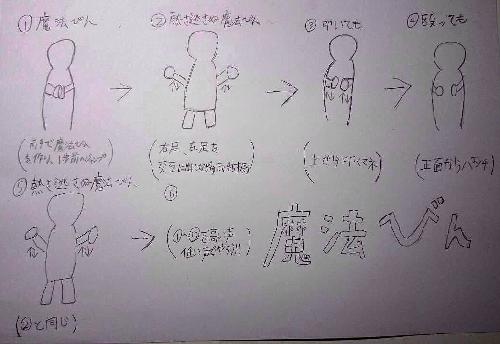 ① 魔法びん
② 熱を逃さぬ魔法びん
③ 叩いても
④ 殴っても
(両手で魔法びん
を作り、1歩前へジャンプ)
(右足、左足を
(上から叩くマネ)
(正面からパンチ)
⑤ 熱を逃さぬ魔法びん
(②と同じ)
⑥
魔法びん